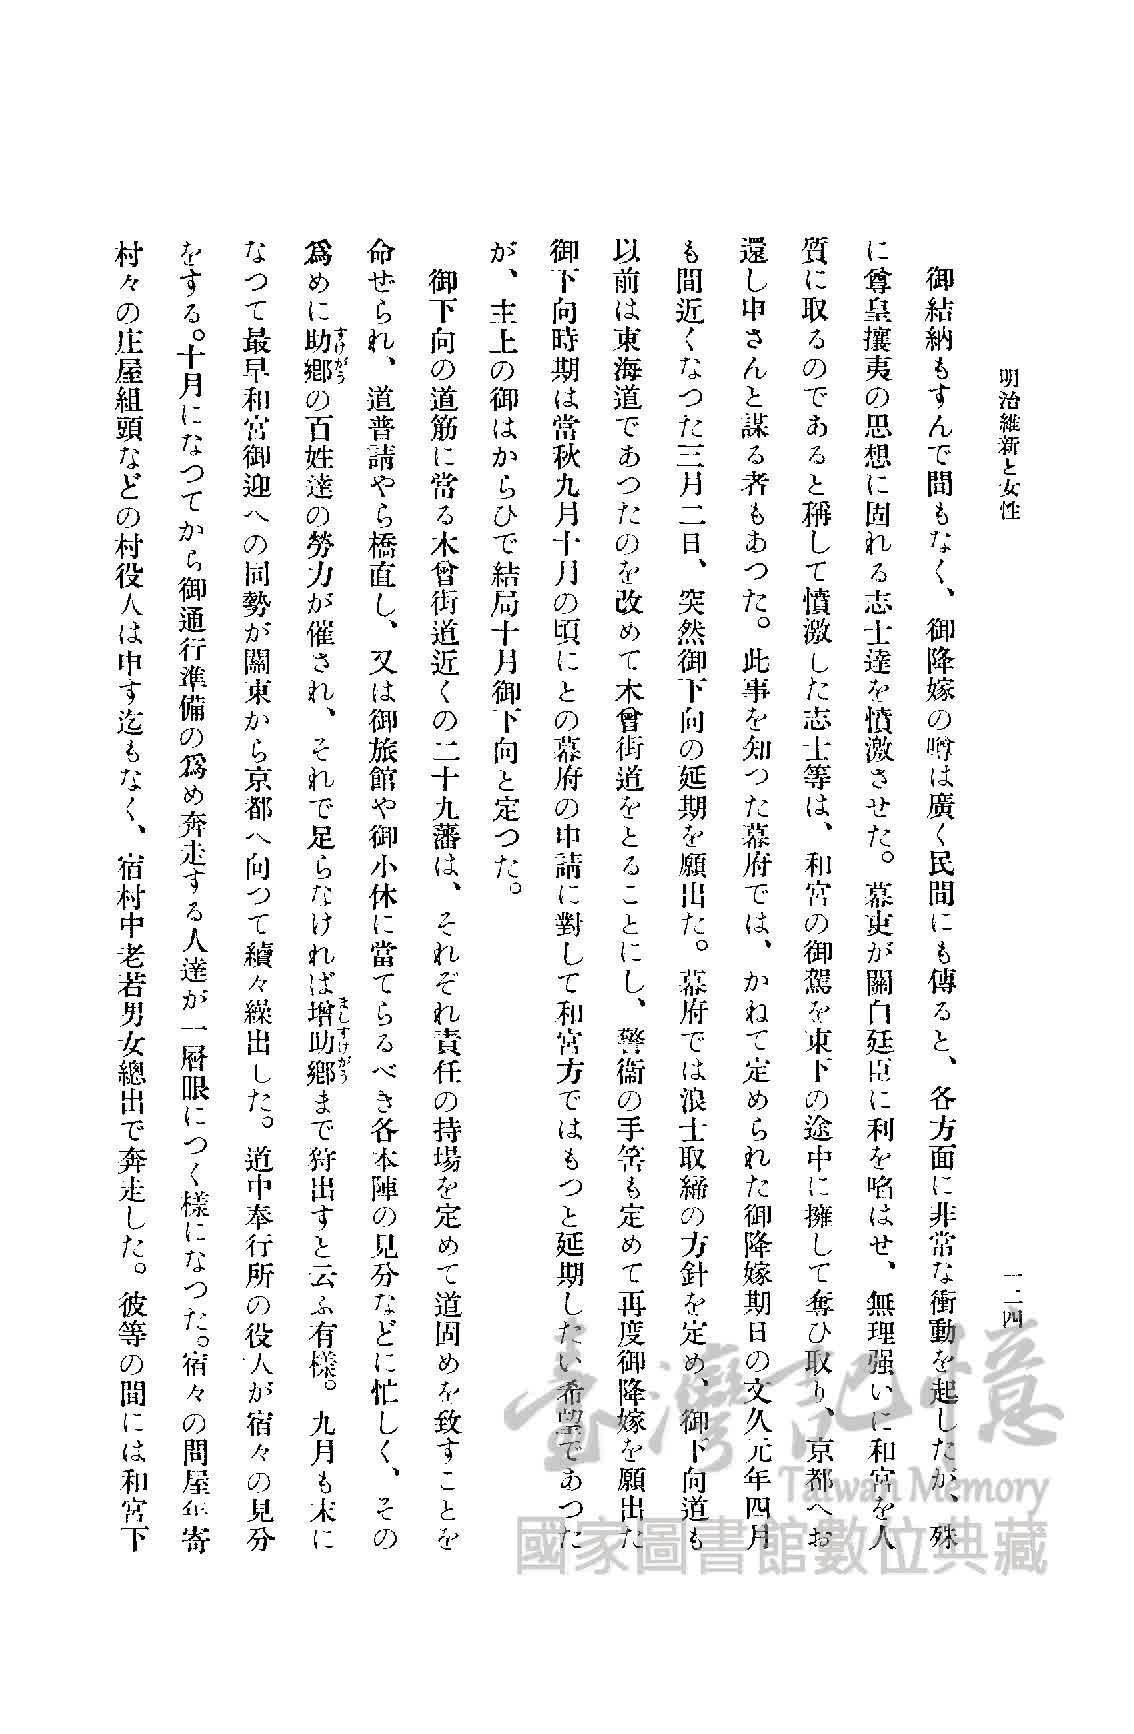 明治維新と女性
一二四
御結納もすんで間もなく、御降嫁の噂は廣く民間にも傳ると、各方面に非常な衝動を起したが、殊
に尊皇攘夷の思想に固れる志士達を憤激させた。幕吏が關白廷臣に利を啗はせ、無理强いに和宮を人
質に取るのであると稱して憤激した志士等は、和宮の御駕を東下の途中に擁して奪ひ取り、京都へお
還し申さんと謀る者もあつた。此事を知つた幕府では、かねて定められた御降嫁期日の文久元年四月
も間近くなつた三月二日、突然御下向の延期を願出た。幕府では浪士取締の方針を定め、御下向道も
以前は東海道であつたのを改めて木曾街道をとることにし、警衞の手筈も定めて再度御降嫁を願出た
御下向時期は當秋九月十月の頃にとの幕府の申請に對して和宮方ではもつと延期したい希望であつた
が、主上の御はからひで結局十月御下向と定つた。
御下向の道筋に當る木曾街道近くの二十九藩は、それぞれ責任の持場を定めて道固めを致すことを
命ぜられ、道普請やら橋直し、又は御旅館や御小休に當てらるべき各本陣の見分などに忙しく、その
爲めに助鄕すけがうの百姓達の勞力が催され、それで足らなければ增助鄕ましすけがうまで狩出すと云ふ有樣。九月も末に
なつて最早和宮御迎への同勢が關東から京都へ向つて續々繰出した。道中奉行所の役人が宿々の見分
をする。十月になつてから御通行準備の爲め奔走する人達が一層眼につく樣になつた。宿々の問屋年寄
村々の庄屋組頭などの村役人は申す迄もなく、宿村中老若男女總出で奔走した。彼等の間には和宮下
臺灣記憶
Taiwan Memory
國家圖書館數位典藏